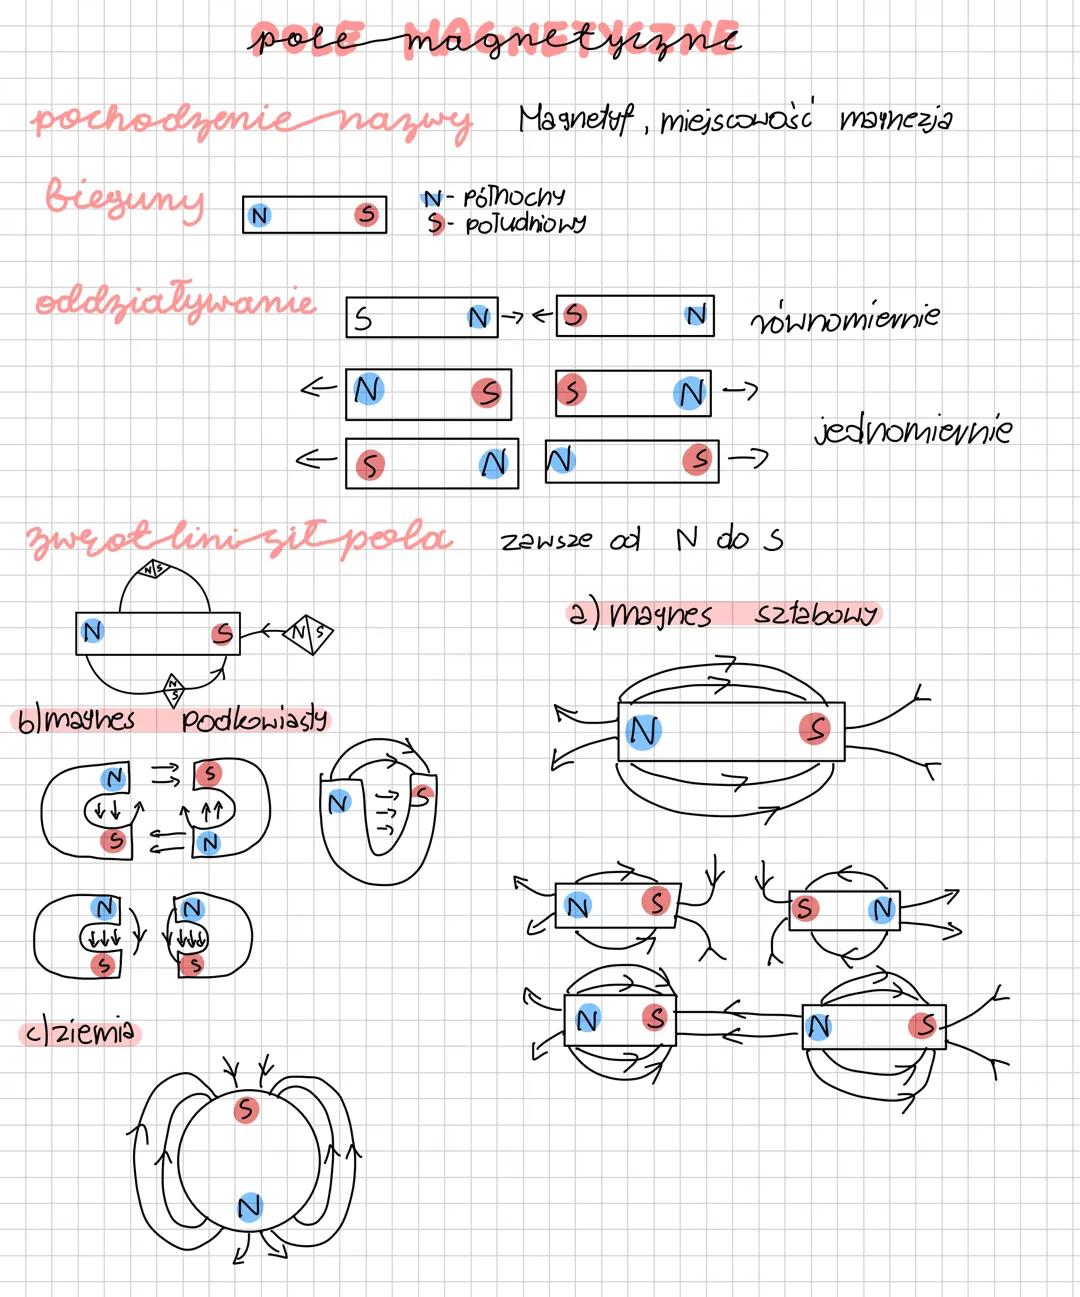 pole magnetyczne
pochodzenie nazwy Magnetyt, miejscowość magnezja
bieguny N S N- północny
S- południowy
oddziaływanie S N S N równomiernie
N S S N
jednomiernie
S N N S
zwrot lini sił pola zawsze od N do S
N S
N S N S
N S
a) magnes sztabowy
b) magnes podkowiasty
N S
N S
N S
S N
N S S N
N N
S S
N S N S
c) ziemia
S
N